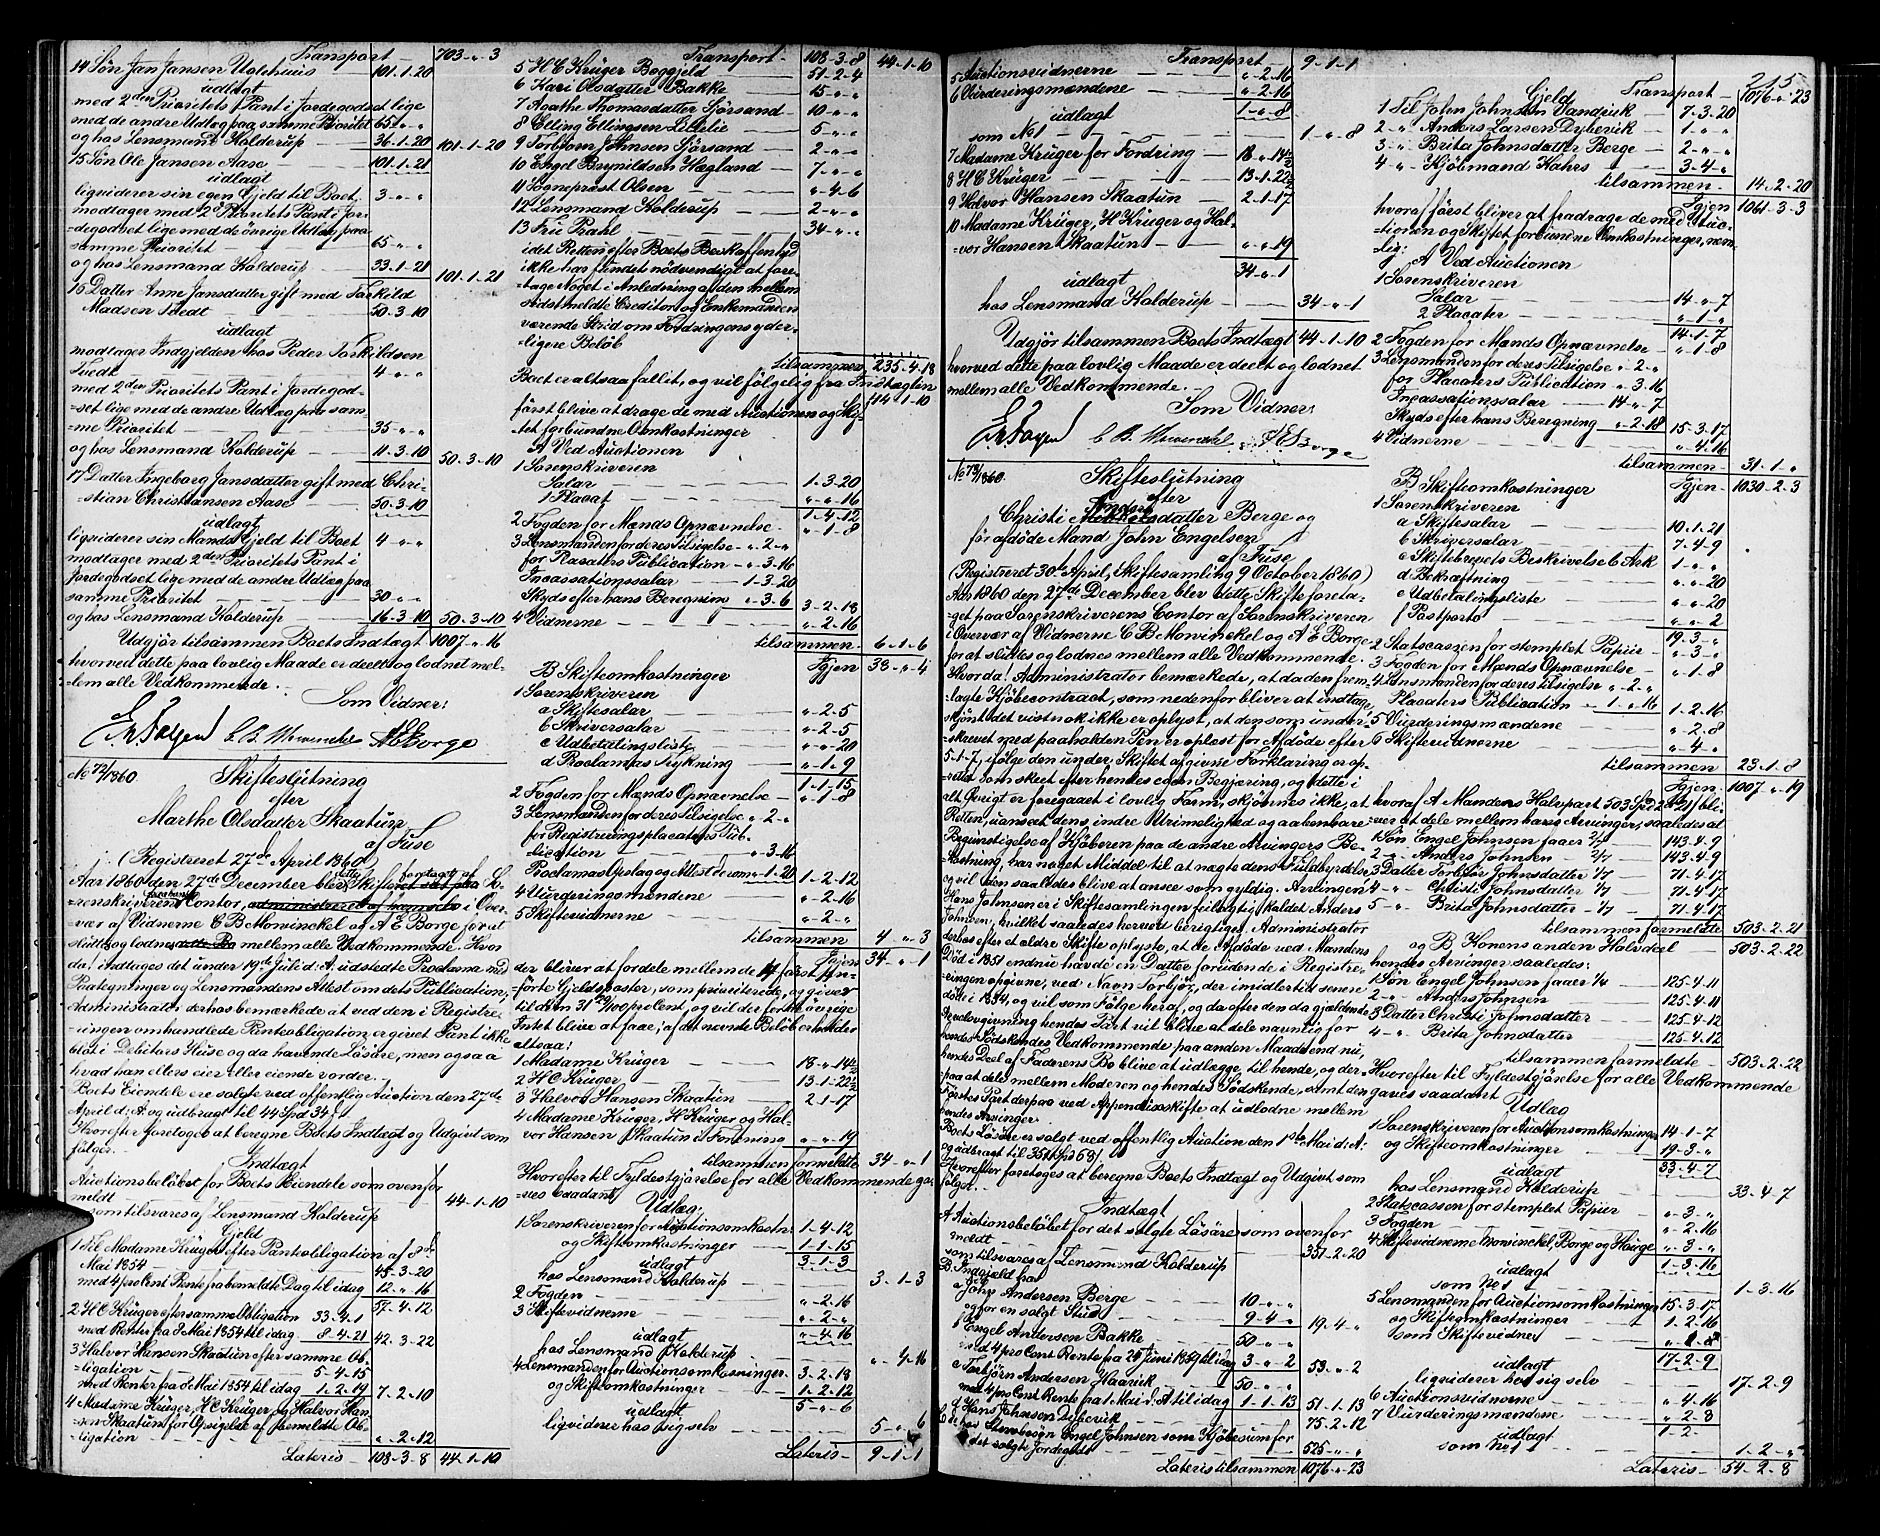 Transport — 703 - „ - 3
14 Søn Jan Jansen Uglehuus — 101-1-20
udlagt
med 2den Prioritets Pant i Jordegodset lige
med de andre Udlæg paa samme Prioritet 65 „ „
og hos Lensmand Kolderup — 36-1-20 101-1-20
15 Søn Ole Jansen Aase — 101-1-21
udlagt
liqviderer sin egen Gjeld til Boet 3 - „ - „
modtager med 2den Prioritets Pant i Jor-
degodset lige med de øvrige Udlæg paa
samme Prioritet — 65 - „ - „
og hos Lensmand Kolderup — 33-1-21 101-1-21
16 Datter Anne Jansdatter gift med Torkild
Madsen Tvedt — 50-3-10
udlagt
modtager Indgjelden hos Peder Torkildsen
Tvedt — 4 - „ - „
med 2den Prioritets Pant i Jordegod-
set lige med de andre Udlæg paa sam-
me Prioritet — 35 - „ - „
og hos Lensmand Kolderup — 11-3-10 50-3-10
17 Datter Ingeborg Jansdatter gift med Chri-
stian Christiansen Aase — 50-3-10
udlagt
liqviderer sin Mands Gjeld til Boet 4 - „ - „
modtager med 2den Prioritets Pant i
Jordegodset lige med de andre Udlæg paa
samme Prioritet — 30 - „ - „
og hos Lensmand Kolderup — 16-3-10 50-3-10
Udgjør tilsammen Boets Indtægt 1007 - „ - 16
hvorved dette paa lovlig Maade er deelt og lodnet mel-
lem alle Vedkommende.
Som Vidner:
C. B. Mowinckel A E Borge
No 72/1860 Skifteslutning
efter
Marthe Olsdatter Skaatun
af Fuse
(Registreret 27de April 1860)
Aar 1860 den 27de December blev dette Skifte foretaget af So-
renskriveren Contor, i Over-
vær af Vidnerne C B Mowinckel og A E Borge for at
sluttes og lodnes mellem alle Vedkommende. Hvor-
da! indtages det under 19de Juli d: A. udstedte Proclama med
Paategninger og Lensmandens Attest om dets Publication,
Administrator derhos bemærkede at ved den i Registre-
ringen omhandlede Panteobligation er givet Pant ikke
blot i Debitors Huse og da havende Løsøre, men ogsaa
hvad han ellers eier eller eiende vorder.
Boets Eiendele ere solgte ved offentlig Auction den 27de
April d: A og udbragt til 44 Spd 34 ß
Hvorefter foretoges at beregne Boets Indtægt og Udgivt som
følger.
Indtægt
Auctionsbeløbet for Boets Eiendele som ovenfor
meldt — 44-1-10
som tilsvares af Lensmand Kolderup
Gjeld
1 Til Madame Krüger efter Panteobligation af 8de
Mai 1854 — 45-3-20
med 4 pro Cent Rente fra bemeldte Dag til idag 12 - „ - 16
57-4-12
2 H C Krüger efter samme Obligation 33-4-1
med Renter fra 8 Mai 1854 til idag 8-4-21 42-3-22
3 Halvor Hansen Skaatun efter samme Ob-
ligation — 5-4-15
med Renter fra 8 Mai 1854 til idag 1-2-19 7-2-10
4 Madame Krüger, H C Krüger og Halvor Han-
sen Skaatun for Opsigelse af bemeldte Ob-
ligation — „ - 2-12
Lateris — 108-3-8 44-1-10
Transport — 108-3-8 44-1-10
5 H C Krüger Boggjeld — 51-2-4
6 Kari Olsdatter Bakke — 15 - „ - „
7 Agathe Thomasdatter Sjørsand — 10 - „ - „
8 Elling Ellingsen Lillelie — 5 - „ - „
9 Torbjørn Johnsen Sjørsand — 2 - „ - „
10 Engel Brynildsen Hægland — 7 - „ - „
11 Sogneprest Olsen — „ - 4-6
12 Lensmand Kolderup — 2 - „ - „
13 Frie Dahl — 34 - „ - „
idet Retten efter Boets Beskaffenhed
ikke har fundet nødvendigt at fore-
tage Noget i Anledning af den mellem
sidstmeldte Creditor og Enkemanden
værende Strid om Fordringens yder-
ligere Beløb
tilsammen 235-4-18
Boet er altsaa fallit, og vil følgelig fra Indtægten
44-1-10
først blive at drage de med Auctionen og Skif-
tet forbundne Omkostninger
A Ved Auctionen
1 Sorenskriveren
Salar — 1-3-20
1 Placat — „ - „ - 16
1-4-12
2 Fogden for Mænds Opnævnelse — „ - 1-8
3 Lensmanden for deres Tilsigelse „ - 2 - „
for Placatens Publication — „ - 3-16
Incassationssalar — 1-3-20
Skyds efter hans Beregning „ - 3-6 3-2-18
4 Vidnerne — „ - 2-16
tilsammen 6-1-6
Igjen 38 - „ - 4
B Skifteomkostninger
1 Sorenskriveren
a Skiftesalar — „ - 2-5
b Skriversalar — „ - 2-5
c Udbetalingsliste — „ - „ - 20
d Proclamas Trykning — „ - 1-9
1-1-15
2 Fogden for Mænds Opnævnelse — „ - 1-8
3 Lensmanden for deres Tilsigelse „ - 2 - „
for Registreringsplacatens Pub-
lication — „ - 3-16
Proclamas Opslag og Attest derom „ - 1-20 1-2-12
4 Vurderingsmændene — „ - 2-16
5 Skiftevidnerne — „ - 2 - „
tilsammen 4 - „ - 3
Igjen 34 - „ - 1
der bliver at fordele mellem de 4 først an-
førte Gjeldsposter, som prioriterede, og giver
til dem 31 72/100 pro Cent, og vil der for de øvrige
Intet blive at faae; af det nævnte Beløb erholder
altsaa:
1 Madame Krüger — 18 - „ - 14½
2 H C Krüger — 13-1-22½
3 Halvor Hansen Skaatun — 2-1-17
4 Madame Krüger, H Krüger og Hal-
vor Hansen Skaatun i Forening — „ - „ - 19
tilsammen formeldte 34 - „ - 1
Hvorefter til Fyldestgjørelse for alle Vedkommende ga-
ves saadant
Udlæg:
1 Sorenskriveren for Auctionsomkostn: 1-4-12
og Skifteomkostninger — 1-1-15
3-1-3
udlagt
hos Lensmand Kolderup — 3-1-3
2 Fogden — „ - 2-16
3 Skiftevidnerne — „ - 2 - „
„ - 4-16
udlagt
hos Lensmand Kolderup — „ - 4-16
4 Lensmanden for Auctionsomkostninger 3-2-18
og Skifteomkostninger — 1-2-12
5 - „ - 6
udlagt
liqviderer hos sig selv — 5 - „ - 6
Lateris — 9-1-1
Transport — 9-1-1
5 Auctionsvidnerne — „ - 2-16
6 Vurderingsmændene — „ - 2-16
1 - „ - 8
udlagt
som No 1 — 1 - „ - 8
7 Madame Krüger for Fordring — 18 - „ - 14½
8 H C Krüger — 13-1-22½
9 Halvor Hansen Skaatun — 2-1-17
10 Madame Krüger, H Krüger og Hal-
vor Hansen Skaatun — „ - „ - 19
34 - „ - 1
udlagt
hos Lensmand Kolderup — 34 - „ - 1
Udgjør tilsammen Boets Indtægt 44-1-10
hvorved dette paa lovlig Maade er deelt og lodnet
mellem alle Vedkommende.
Som Vidner:
C. B. Mowinckel A E Borge
No 73/1860 Skifteslutning
efter
Christi Andersdatter Berge og
før afdøde Mand John Engelsen
af Fuse
(Registreret 30te April, Skiftesamling 9 October 1860)
Aar 1860 den 27de December blev dette Skifte foreta-
get paa Sorenskriverens Contor af Sorenskriveren
i Overvær af Vidnerne C B Mowinckel og A E Borge
for at sluttes og lodnes mellem alle Vedkommende.
Hvorda! Administrator bemærkede, at da den frem-
lagte Kjøbecontract, som nedenfor bliver at indtage,
skjønt det vistnok ikke er oplyst, at den som under-
skrevet med paaholden Pen er oplæst for Afdøde efter
5-1-7, ifølge den under Skiftet afgivne Forklaring er op-
rettet som skeet efter hendes egen Begjæring, og dette i
alt Øvrigt er foregaaet i lovlig Form, skjønnes ikke, at
Retten, uanseet dens indre Urimelighed og aabenbare
Begunstigelse af Kjøberen paa de andre Arvingers Be-
kostning, har noget Middel til at nægte dens Fuldbyrdelse,
og vil den saaledes blive at ansee som gyldig. Arvingen
Hans Johnsen er i Skiftesamlingen feilagtig kaldet Anders
Johnsen, hvilket saaledes herved berigtiges. Administrator
derhos efter et ældre Skifte oplyste, at de Afdøde ved Mandens
Død i 1851 endnu havde en Datter foruden de i Registre-
ringen opgivne, ved Navn Torbjør, der imidlertid senere
døde i 1854, og vil som Følge heraf, og da efter den da gjældende
Arvelovgivning hendes Part vil blive at dele navnlig for
hendes Sødskendes Vedkommende paa anden Maade end nu,
hendes Deel af Faderens Bo blive at udlægge til hende, og der-
paa at dele mellem Moderen og hendes Sødskende, samt den
Førstes Part derpaa ved Appendixskifte at udlodne mellem
hendes Arvinger.
Boets Løsøre er solgt ved offentlig Auction den 1ste Mai d: A:
og udbragt til 351 Spd 68 ß.
Hvorefter foretoges at beregne Boets Indtægt og Udgivt som
følger.
Indtægt
A Auctionsbeløbet for det solgte Løsøre som ovenfor
meldt — 351-2-20
som tilsvares af Lensmand Kolderup
B. Indgjæld fra
a John Andersen Berge — 10 - „ - „
og for en solgt Stud — 9-4 - „ 19-4 - „
b Engel Andersen Bakke — 50 - „ - „
med 4 pro Cent Rente fra 25 Juni 1859 til idag 3 - „ - 2 53 - „ - 2
c Torbjørn Andersen Haavik — 50 - „ - „
med 4 pro Cent Rente fra 1 Mai d: A til idag 1-1-13 51-1-13
d Hans Johnsen Dybevik — 75-2-12
C. hos Stervbosøn Engel Johnsen som Kjøbesum for
det solgte Jordegods — 525 - „ - „
Lateris tilsammen 1076 - „ - 23
215
Transport — 1076 - „ - 23
Gjeld
1 Til John Johnsen Vandvik — 7-3-20
2 - „ Anders Larsen Dybevik — 1 - „ - „
3 - „ Brita Johnsdatter Berge — 2 - „ - „
4 - „ Kjøbmand Kahrs — 3-4 - „
tilsammen — 14-2-20
Igjen 1061-3-3
hvoraf først bliver at fradrage de med Auc-
tionen og Skiftet forbundne Omkostninger, nem-
lig:
A Ved Auctionen
1 Sorenskriveren
Salar — 14 - „ - 7
2 Placater — „ - 1 - „
14-1-7
2 Fogden for Mænds Opnævnelse — „ - 1-8
3 Lensmanden for deres Tilsigelse „ - 2 - „
for Placatens Publication — „ - 3-16
Incassationssalar — 14 - „ - 7
Skyds efter hans Beregning „ - 2-18 15-3-17
4 Vidnerne — „ - 4-16
tilsammen — 31-1 - „
Igjen — 1030-2-3
B Skifteomkostninger
1 Sorenskriveren
a Skiftesalar — 10-1-21
b Skriversalar — 7-4-9
c Skiftebrevets Beskrivelse 6 Ark 1 - „ - „
d Bekræftning — „ - „ - 20
e Udbetalingsliste — „ - „ - 20
f Postporto — „ - „ - 2
19-3 - „
2 Statscassen for stemplet Papiir — „ - 3 - „
3 Fogden for Mænds Opnævnelse — „ - 1-8
4 Lensmanden for deres Tilsigelse „ - 2 - „
Placatens Publication — 1 - „ - 16 1-2-16
5 Vurderingsmændene — „ - 2-8
6 Skiftevidnerne — „ - 4 - „
tilsammen 23-1-8
Igjen — 1007 - „ - 19
hvoraf A Mandens Halvpart 503 Spd 2 21/ bli-
ver at dele mellem hans Arvinger, saaledes at
1 Søn Engel Johnsen faaer 2/7 — 143-4-9
2 - „ - Anders Johnsen — 2/7 — 143-4-9
3 Datter Torbjør Johnsdatter 1/7 — 71-4-17
4 - „ - Christi Johnsdatter 1/7 — 71-4-17
5 - „ - Brita Johnsdatter - 1/7 — 71-4-17
tilsammen formeldte 503-2-21
og B. Konens anden Halvdeel 503-2-22
hendes Arvinger saaledes:
1 Søn Engel Johnsen faaer 1/4 — 125-4-11
2 - „ - Anders Johnsen — 125-4-11
3 Datter Christi Johnsdatter — 125-4-12
4 - „ - Brita Johnsdatter — 125-4-12
tilsammen formeldte — 503-2-22
Hvorefter til Fyldestgjørelse for alle Vedkommende
gaves saadant Udlæg
1 Sorenskriveren for Auctionsomkostninger 14-1-7
og Skifteomkostninger — 19-3 - „
33-4-7
udlagt
hos Lensmand Kolderup — 33-4-7
2 Statscassen for stemplet Papiir — „ - 3 - „
3 Fogden — „ - 2-16
4 Skiftevidnerne Mowinckel, Borge og Hauge „ - 3 - „
1-3-16
udlagt
som No 1 — 1-3-16
5 Lensmanden for Auctionsomkostninger 15-3-17
og Skifteomkostninger — 1-2-16
som Skiftevidne —
17-2-9
udlagt
liqviderer hos sig selv — 17-2-9
6 Auctionsvidnerne — „ - 4-16
7 Vurderingsmændene — „ - 2-8
1-2-
udlagt
som No 1 — 1-2 - „
Lateris — 54-2-8